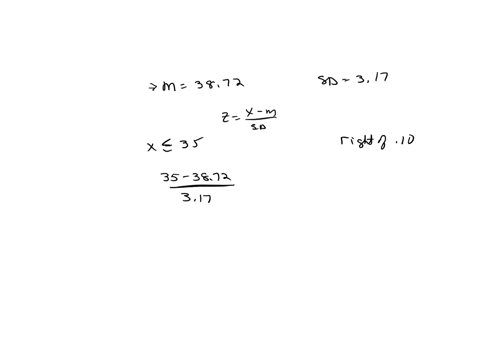 → m = 38.72 SD - 3.17
z = x-m / SD
x ≤ 35 right of .10
35-38.72 / 3.17